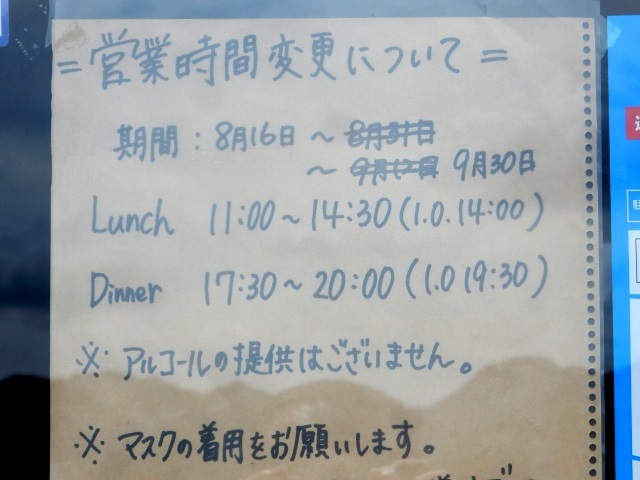 =営業時間変更について=
期間：8月16日 ～ 8月31日
～ 9月12日 9月30日
Lunch 11:00～14:30(l.o.14:00)
Dinner 17:30～20:00(l.o 19:30)
※ アルコールの提供はございません。
※ マスクの着用をお願いします。